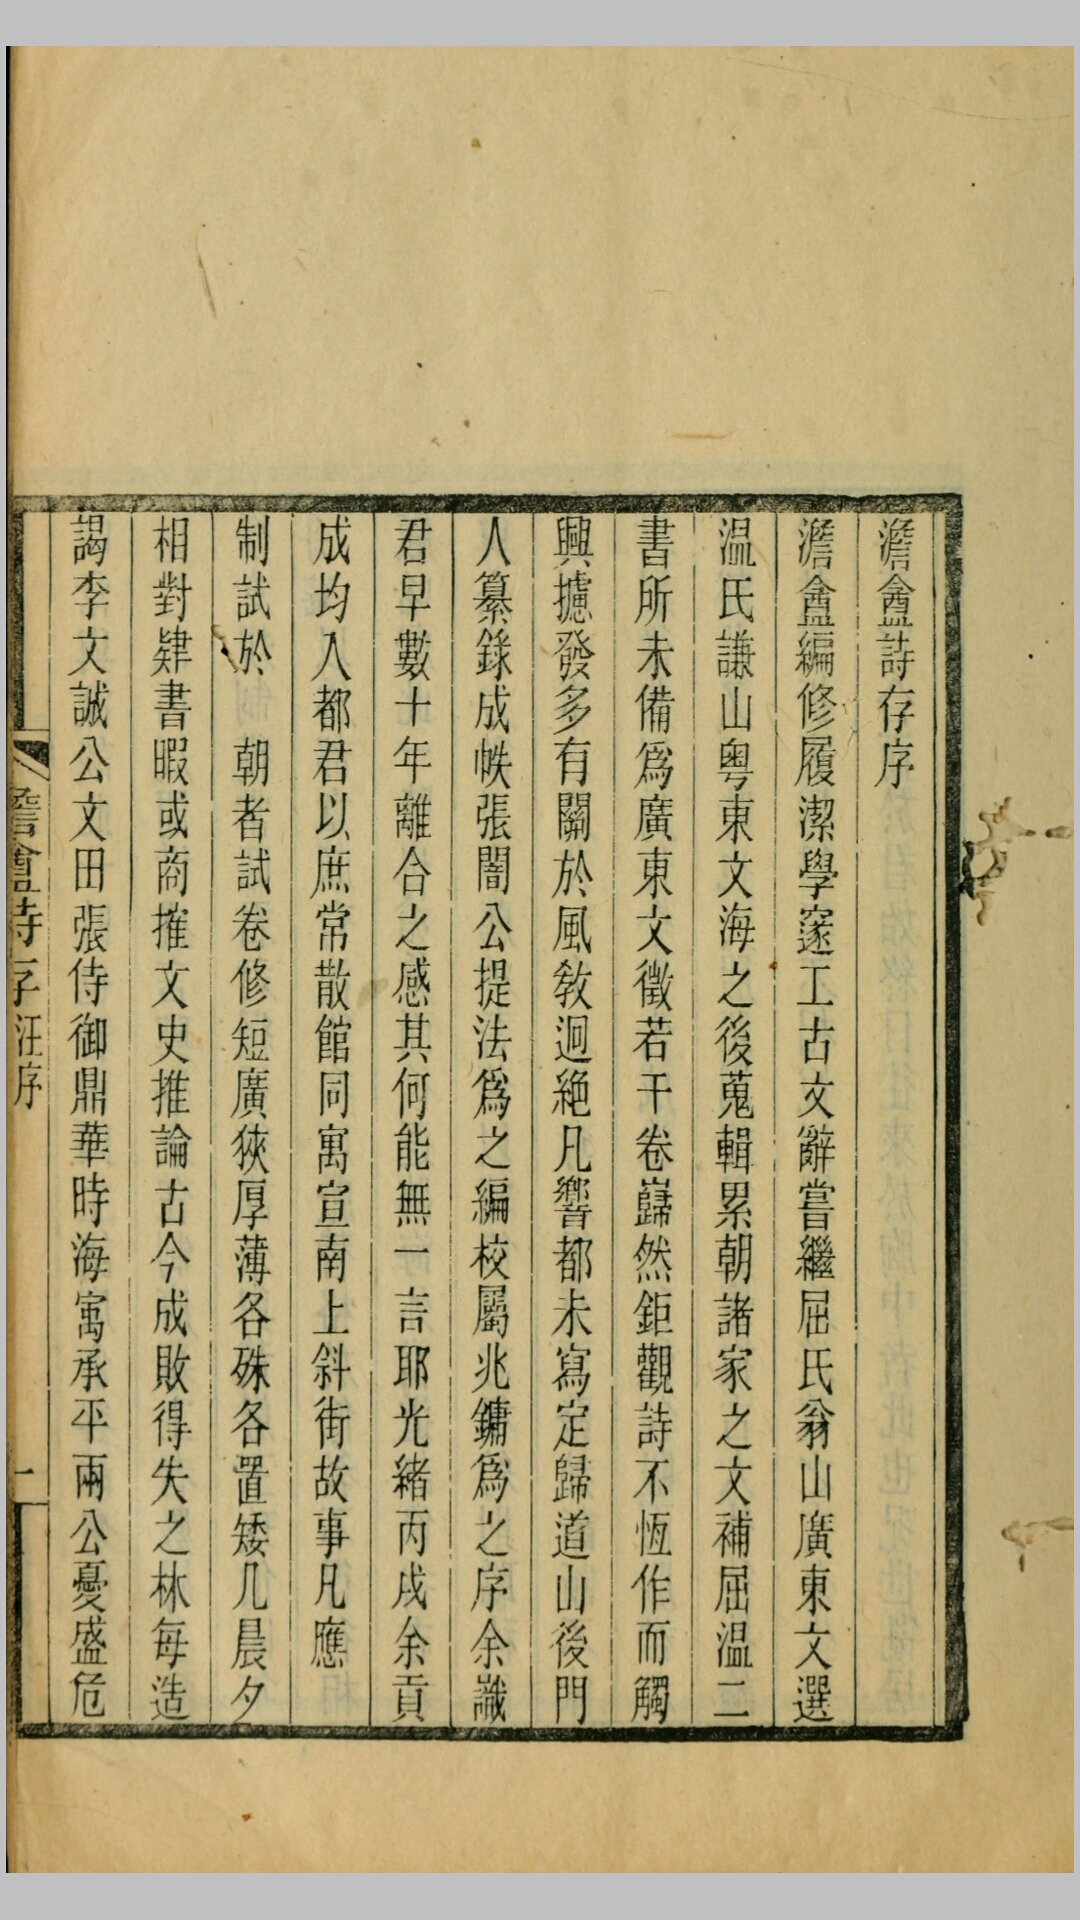 澹盦詩存序
澹盦編修履潔學邃工古文辭嘗繼屈氏翁山廣東文選
温氏謙山粤東文海之後蒐輯累朝諸家之文補屈温二
書所未備爲廣東文徵若干卷巋然鉅觀詩不恆作而觸
興攄發多有關於風敎迥絶凡響都未寫定歸道山後門
人纂錄成帙張闇公提法爲之編校屬兆鏞爲之序余識
君早數十年離合之感其何能無一言耶光緒丙戌余貢
成均入都君以庶常散館同寓宣南上斜街故事凡應
制試於　朝者試卷修短廣狹厚薄各殊各置矮几晨夕
相對肄書暇或商搉文史推論古今成敗得失之林每造
謁李文誠公文田張侍御鼎華時海㝢承平兩公憂盛危
澹盦詩存汪序
一